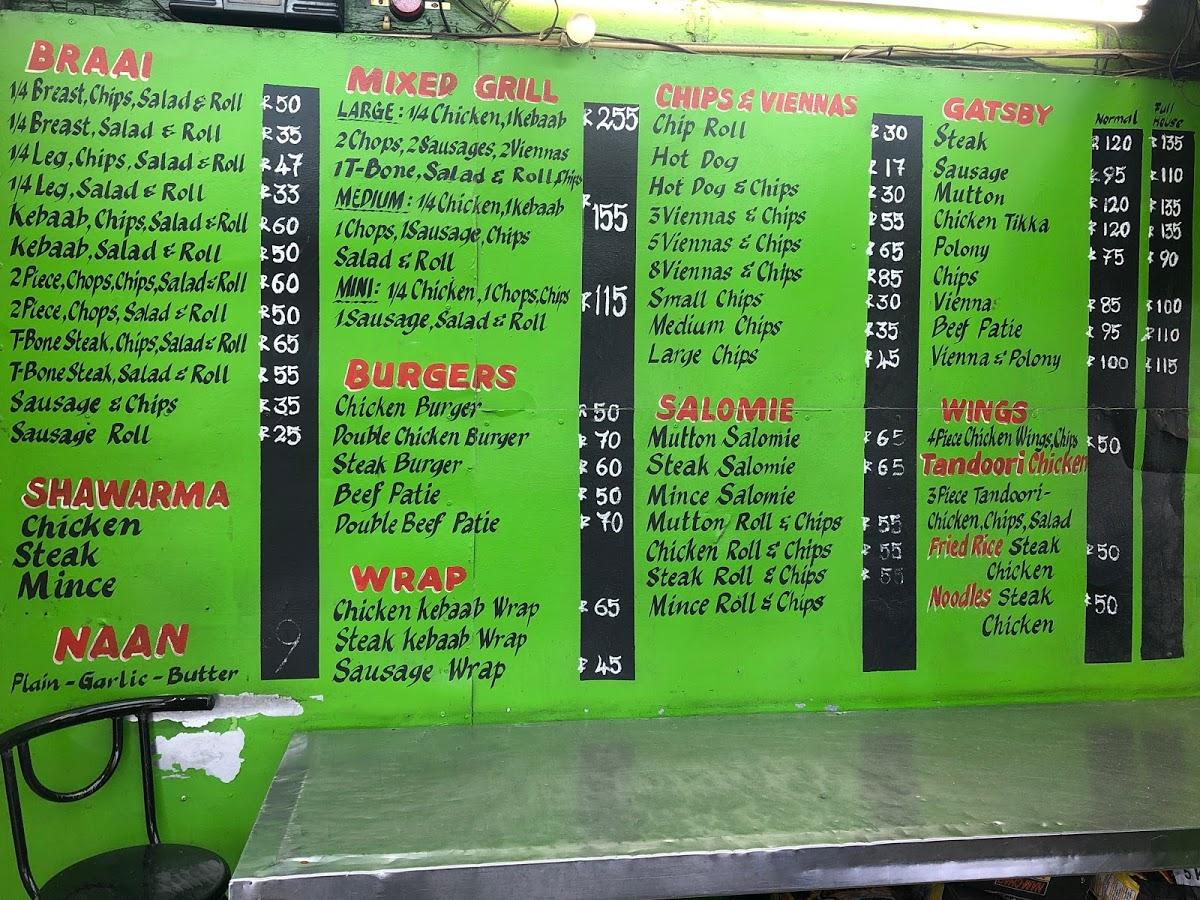 BRAAI
1/4 Breast, Chips, Salad & Roll R50
1/4 Breast, Salad & Roll R35
1/4 Leg, Chips, Salad & Roll R47
1/4 Leg, Salad & Roll R33
Kebaab, Chips, Salad & Roll R60
Kebaab, Salad & Roll R50
2 Piece, Chops, Chips, Salad & Roll R60
2 Piece, Chops, Salad & Roll R50
T-Bone Steak, Chips, Salad & Roll R65
T-Bone Steak, Salad & Roll R55
Sausage & Chips R35
Sausage Roll R25
SHAWARMA
Chicken
Steak
Mince
NAAN
Plain - Garlic - Butter 9
MIXED GRILL
LARGE: 1/4 Chicken, 1 Kebaab R255
2 Chops, 2 Sausages, 2 Viennas
1 T-Bone, Salad & Roll, Chips
MEDIUM: 1/4 Chicken, 1 Kebaab R155
1 Chops, 1 Sausage, Chips
Salad & Roll
MINI: 1/4 Chicken, 1 Chops, Chips R115
1 Sausage, Salad & Roll
BURGERS
Chicken Burger R50
Double Chicken Burger R70
Steak Burger R60
Beef Patie R50
Double Beef Patie R70
WRAP
Chicken Kebaab Wrap R65
Steak Kebaab Wrap
Sausage Wrap R45
CHIPS & VIENNAS
Chip Roll R30
Hot Dog R17
Hot Dog & Chips R30
3 Viennas & Chips R55
5 Viennas & Chips R65
8 Viennas & Chips R85
Small Chips R30
Medium Chips R35
Large Chips R45
SALOMIE
Mutton Salomie R65
Steak Salomie R65
Mince Salomie
Mutton Roll & Chips R55
Chicken Roll & Chips R55
Steak Roll & Chips R55
Mince Roll & Chips
GATSBY Normal Full House
Steak R120 R135
Sausage R95 R110
Mutton R120 R135
Chicken Tikka R120 R135
Polony R75 R90
Chips
Vienna R85 R100
Beef Patie R95 R110
Vienna & Polony R100 R115
WINGS
4 Piece Chicken Wings, Chips R50
Tandoori Chicken
3 Piece Tandoori-
Chicken, Chips, Salad
Fried Rice Steak R50
Chicken
Noodles Steak R50
Chicken